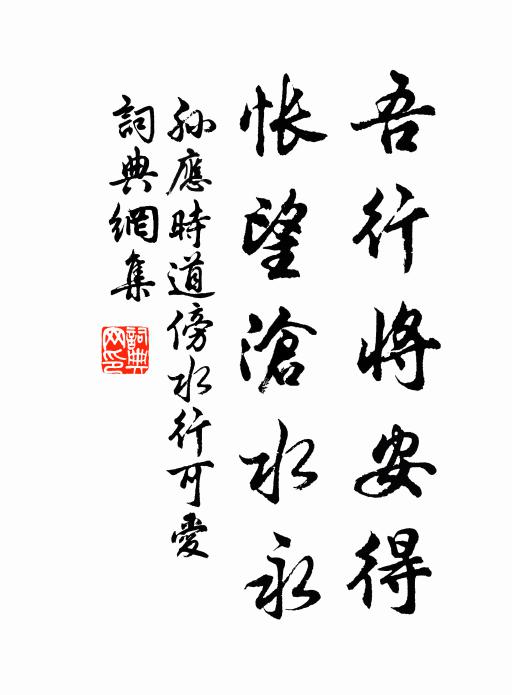 吾行將安得
悵望滄水永
孫應時道傍水行可愛
詞典網集
詞典網印